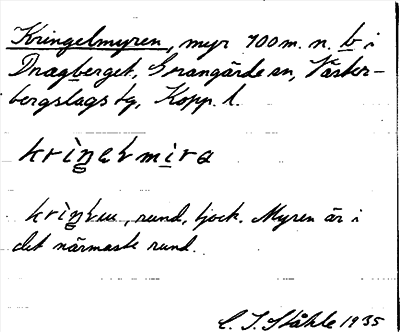 Kringelmyren, myr 700 m. n. b i
Dragberget, Grangärde sn, Väster-
bergslags tg, Kopp. l.
rund, tjock. Myren är i
det närmaste rund.
C. I. Ståhle 1935